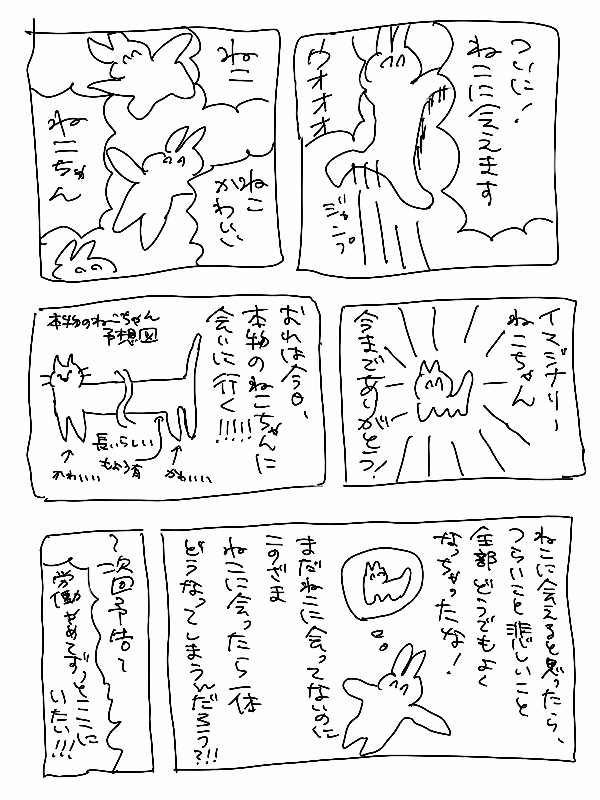 ついに!
ねこに会えます
ウオオオ
ジャンプ
ねこ
ねこ
かわいい
ねこちゃん
イマジナリー
ねこちゃん
今までありがとう!
おれは今日、
本物のねこちゃんに
会いに行く!!!!!
本物のねこちゃん
予想図
長いらしい
もよう有
かわいい
かわいい
ねこに会えると思ったら、
つらいこと悲しいこと
全部どうでもよく
なっちゃったな!
まだねこに会ってないのに
このざま
ねこに会ったら一体
どうなってしまうんだろう?!!
~次回予告~
労働やめてずっとここに
いたい!!!